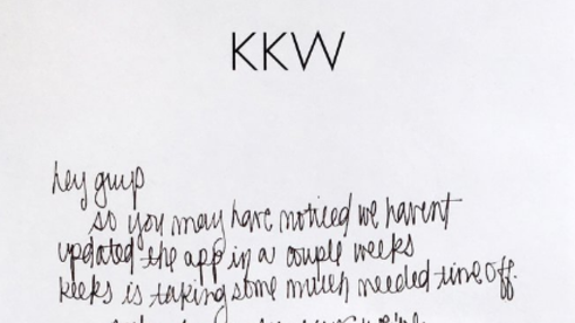 KKW
hey guys
so you may have noticed we havent
updated the app in a couple weeks
keeks is taking some much needed time off.